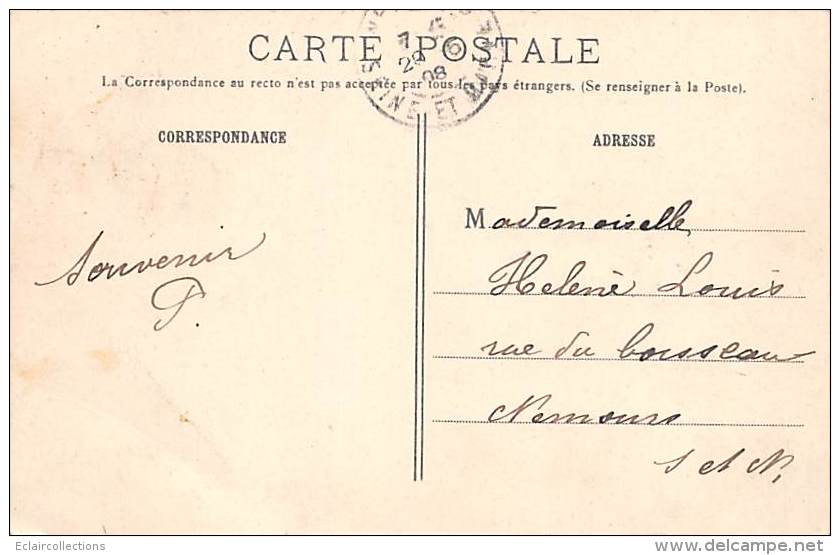 CARTE POSTALE
La Correspondance au recto n'est pas acceptée par tous les pays étrangers. (Se renseigner à la Poste).
7
29 6
08
SEINE ET MARNE
CORRESPONDANCE
ADRESSE
Souvenir
P.
Mademoiselle
Helène Louis
rue du boisseau
Nemours
S et M,
Eclaircollections
delcampe.net